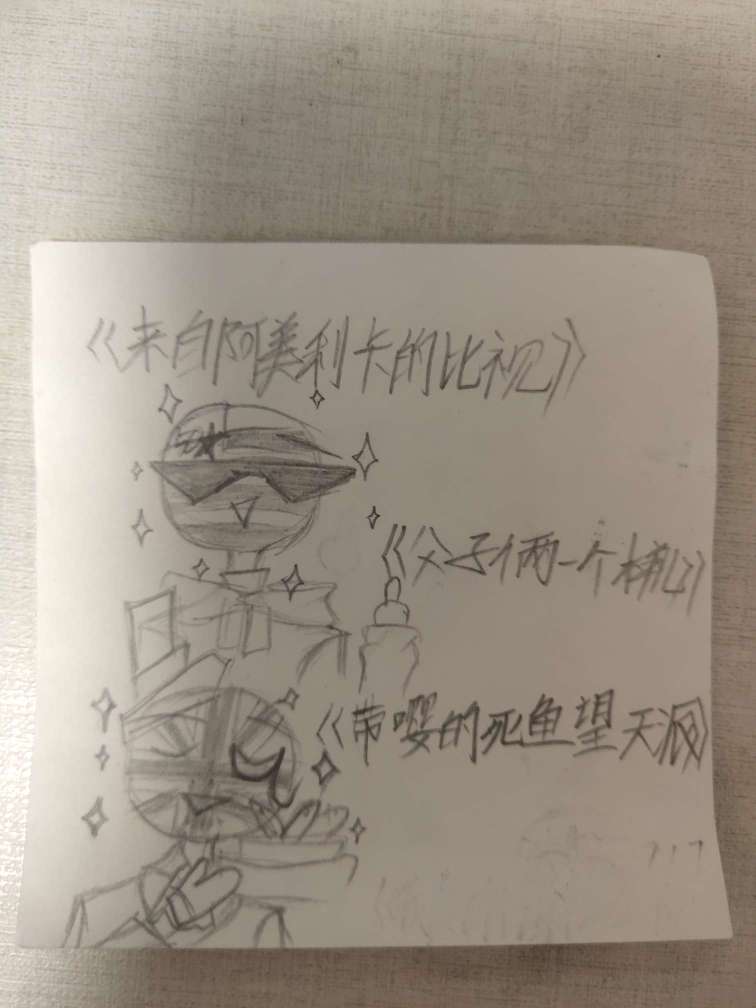 《来自阿美利卡的比视》
《父子俩一个样》
《带嘤的死鱼望天派》